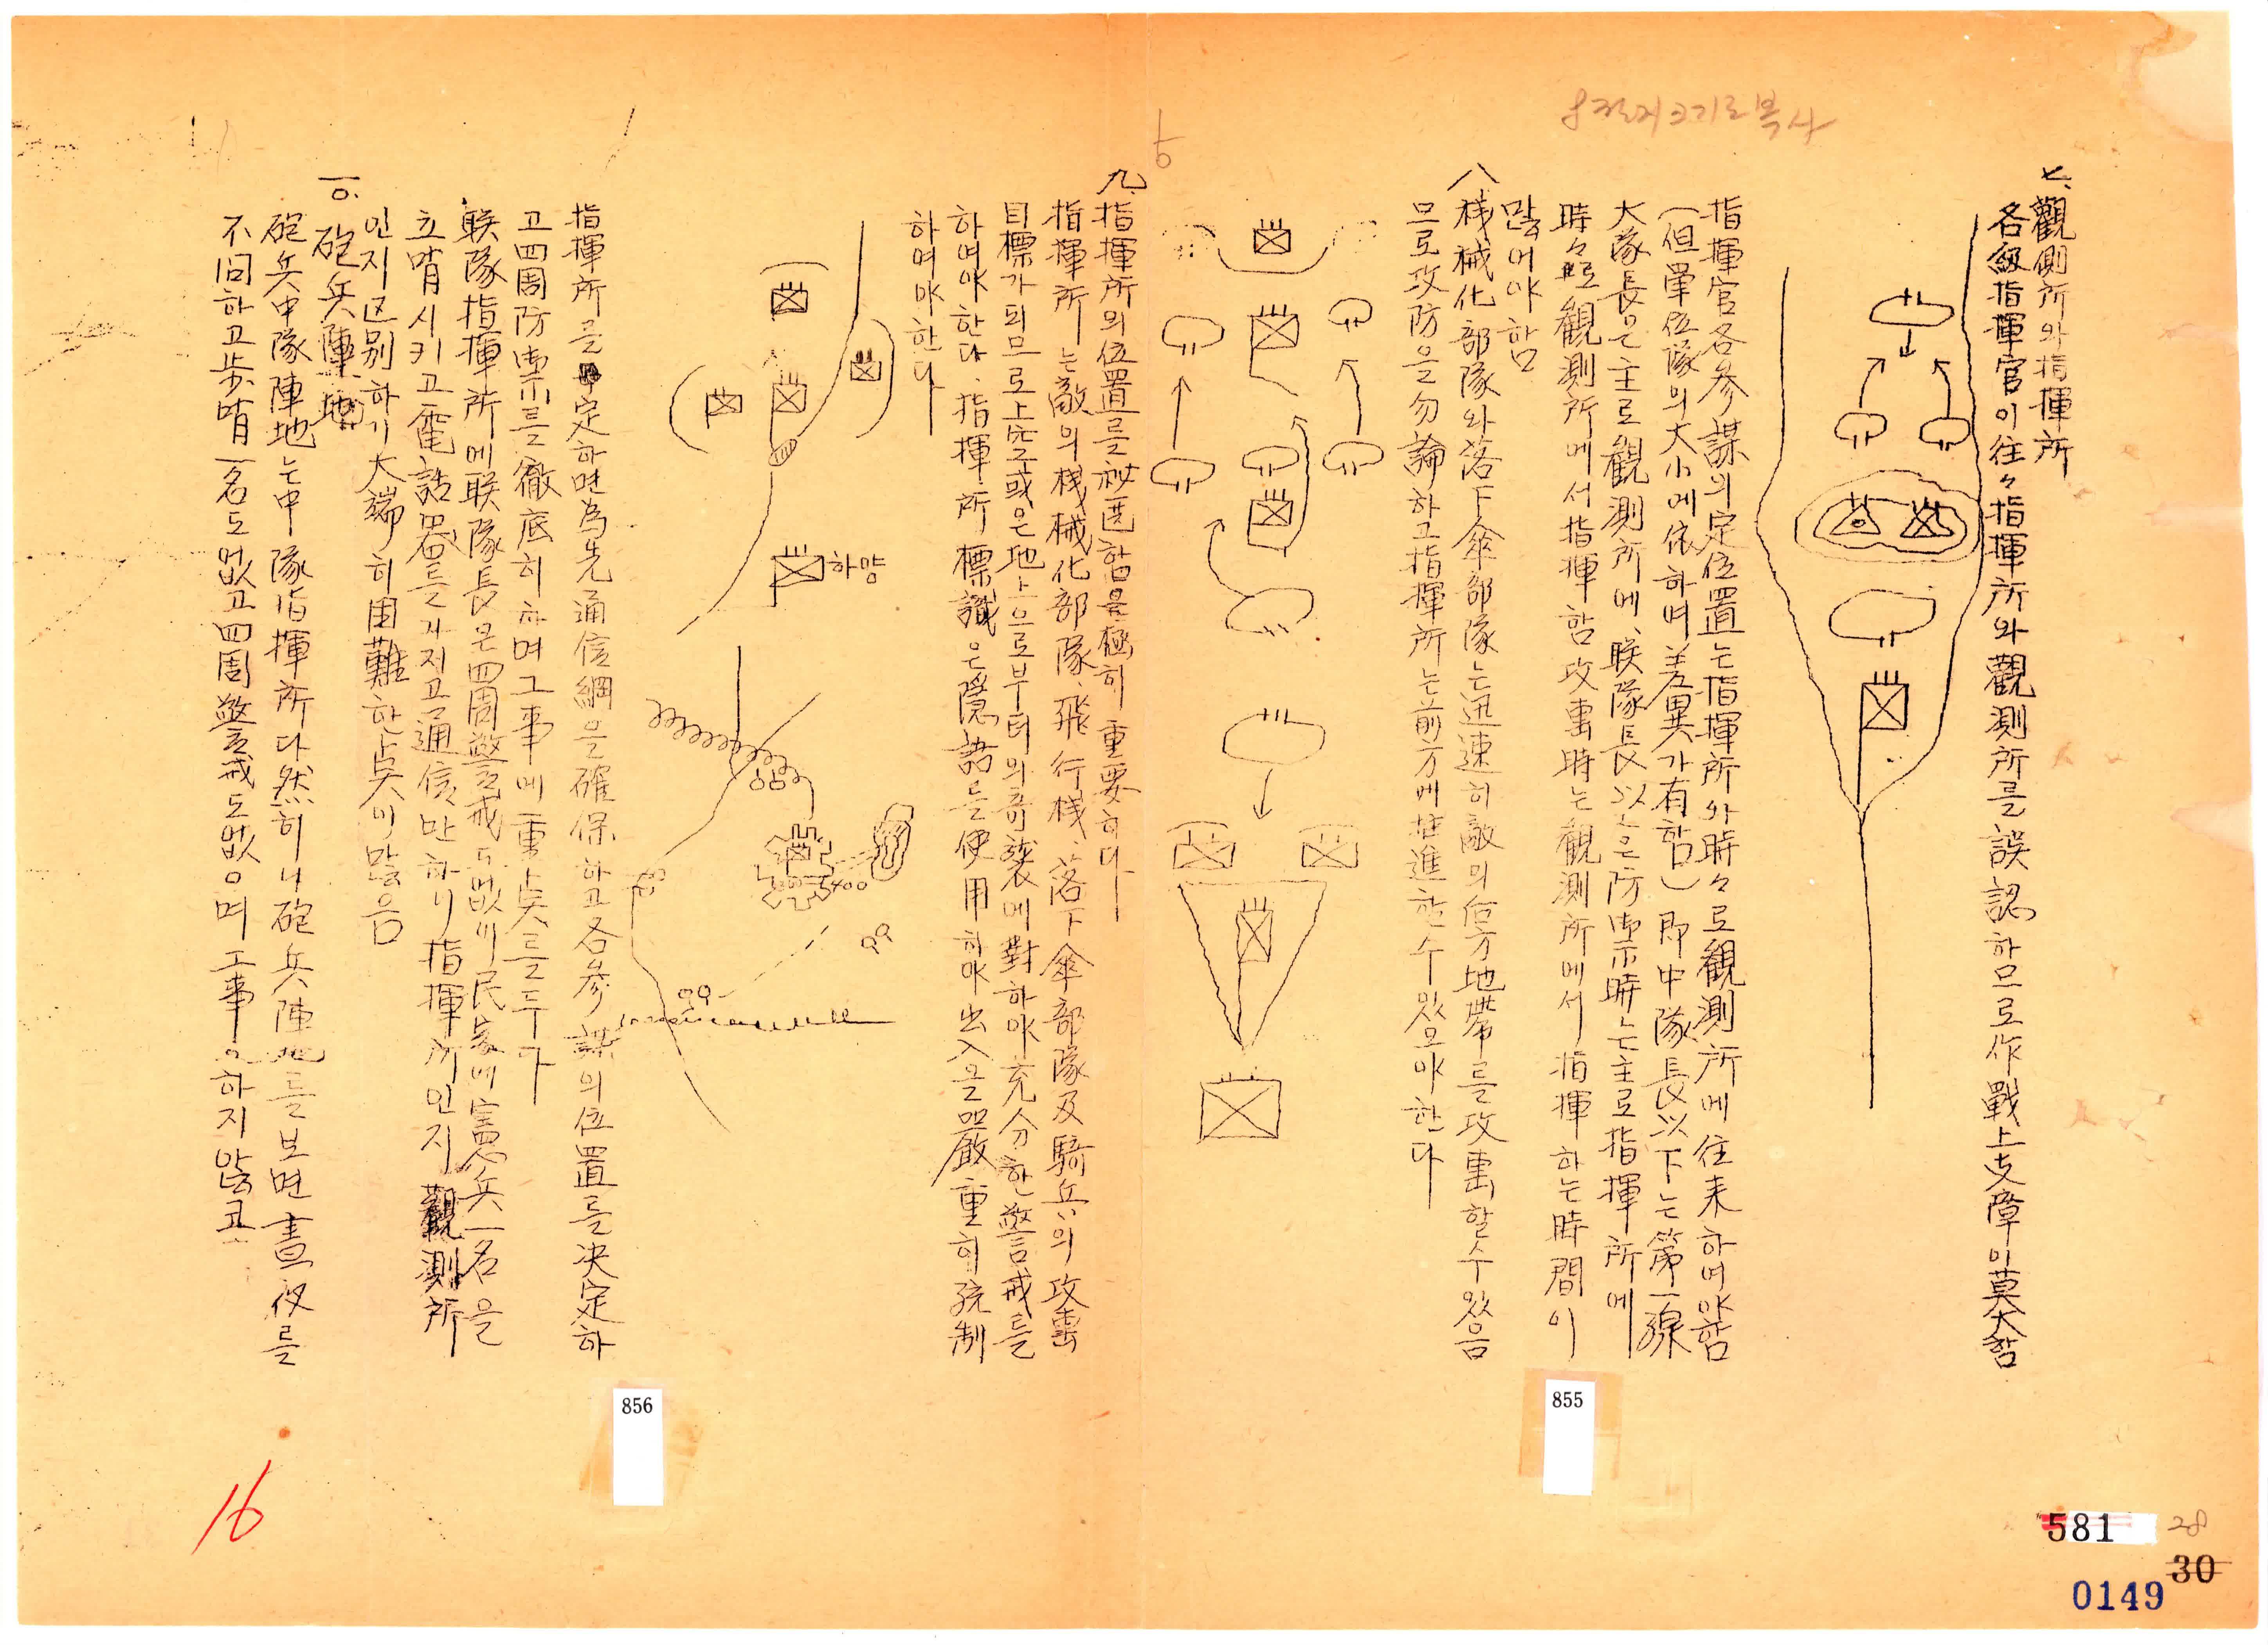 七. 觀側所와指揮所
各級指揮官이往々指揮所와觀測所를誤認하므로作戰上支障이莫大함
指揮官各參謀의定位置는指揮所와時々로觀測所에往来하여야함
(但單位隊의大小에依하며差異가有함) 即中隊長以下는第一線
大隊長은主로觀測所에、联隊長以上은防禦時는主로指揮所에
時々로觀測所에서指揮함攻擊時는觀測所에서指揮하는時間이
많어야함
八 機械化部隊와落下傘部隊는迅速히敵의後方地帶를攻擊할수있음
므로攻防을勿論하고指揮所는前方에推進할수있오야한다
九. 指揮所의位置를秘匿함은極히重要하다
指揮所는敵의機械化部隊、飛行機、落下傘部隊及騎兵의攻擊
目標가되므로上空或은地上으로부터의奇襲에對하야充分한警戒를
하여야한다. 指揮所標識은隱語를使用하야出入을嚴重히統制
하여야한다
하망
400
指揮所를定하면為先通信網을確保하고各參謀의位置를决定하
고四周防禦를徹底히하며그事에重点를두다
联隊指揮所에联隊長은四周警戒도없이民家에憲兵一名을
立哨시키고電話器를가지고通信만하니指揮所인지觀測所
인지区别하기大端히困難한点이많음
一〇. 砲兵陣地
砲兵中隊陣地는中隊指揮所다然히나砲兵陣地를보면晝夜를
不问하고步哨一名도없고四周警戒도없으며工事으하지않고
855
856
16
581
28
30
0149